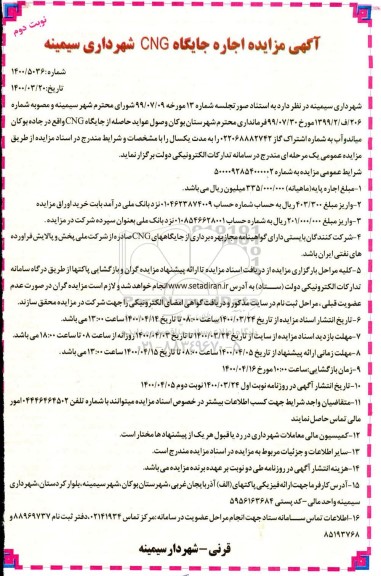 نوبت دوم
آگهی مزایده اجاره جایگاه CNG شهرداری سیمینه
شماره: ۱۴۰۰/۵۰۳۶
تاریخ: ۱۴۰۰/۰۳/۲۰
شهرداری سیمینه در نظر دارد به استناد صورتجلسه شماره ۱۳ مورخه ۹۹/۰۷/۰۹ شورای محترم شهر سیمینه و مصوبه شماره
۲۰۶/ف/۱۳۹۹/۲ مورخ ۹۹/۰۷/۳۰ فرمانداری محترم شهرستان بوکان وصول عواید حاصله از جایگاه CNG واقع در جاده بوکان
میاندوآب به شماره اشتراک گاز ۰۲۲۰۶۸۸۸۲۷۴۲ را به مدت یکسال را با مشخصات و شرایط مندرج در اسناد مزایده از طریق
مزایده عمومی یک مرحله ای مندرج در سامانه تدارکات الکترونیکی دولت برگزار نماید.
شرایط عمومی مزایده به شماره ۵۰۰۰۰۹۲۸۵۴۰۰۰۰۰۲
۱-مبلغ اجاره پایه (ماهیانه) ۳۳۵/۰۰۰/۰۰۰ میلیون ریال می باشد.
۲-واریز مبلغ ۴۰۳/۳۰۰ ریال به حساب شماره حساب ۰۱۰۴۶۲۳۸۷۴۰۰۹ نزد بانک ملی در آمد بابت خرید اوراق مزایده
۳-واریز مبلغ ۲۰۱/۰۰۰/۰۰۰ ریال به شماره حساب ۰۱۰۸۵۴۶۶۲۸۰۰۱ نزد بانک ملی بعنوان سپرده شرکت در مزایده.
۴-شرکت کنندگان بایستی دارای گواهینامه مجاز بهره برداری از جایگاههای CNG صادره از شرکت ملی پخش و پالایش فراورده
های نفتی ایران باشد.
۵-کلیه مراحل بارگزاری مزایده از دریافت اسناد مزایده تا ارائه پیشنهاد مزایده گران و بازگشایی پاکتها از طریق درگاه سامانه
تدارکات الکترونیکی دولت (ستاد) به آدرس www.setadiran.ir انجام خواهد شد و لازم است مزایده گران در صورت عدم
عضویت قبلی، مراحل ثبت نام در سایت مذکور و دریافت گواهی امضای الکترونیکی را جهت شرکت در مزایده محقق سازند.
۶-تاریخ انتشار اسناد مزایده از تاریخ ۱۴۰۰/۰۳/۲۴ ساعت ۰۸:۰۰ تا تاریخ ۱۴۰۰/۰۴/۱۴ ساعت ۱۳:۰۰ می باشد.
۷-مهلت بازدید اسناد مزایده از سایت از تاریخ ۱۴۰۰/۰۳/۲۴ تا تاریخ ۱۴۰۰/۰۴/۰۳ روزانه از ساعت ۰۸ تا ساعت ۱۸:۰۰ می باشد.
۸-مهلت زمانی ارائه پیشنهاد از تاریخ ۱۴۰۰/۰۴/۰۵ ساعت ۰۸:۰۰ تا تاریخ ۱۴۰۰/۰۴/۱۵ ساعت ۱۳:۰۰ می باشد.
۹-زمان بازگشایی: ساعت ۱۰:۰۰ مورخ ۱۴۰۰/۰۴/۱۶
۱۰-تاریخ انتشار آگهی در روزنامه نوبت اول ۱۴۰۰/۰۳/۲۴ نوبت دوم ۱۴۰۰/۰۴/۰۵
۱۱-متقاضیان واجد شرایط جهت کسب اطلاعات بیشتر در خصوص اسناد مزایده میتوانند با شماره تلفن ۰۴۴۴۶۴۶۴۵۰۲ امور
مالی تماس حاصل نمایند
۱۲-کمیسیون مالی معاملات شهرداری در رد یا قبول هر یک از پیشنهادها مختار است.
۱۳-سایر اطلاعات و جزئیات مربوط به مزایده در اسناد مزایده مندرج است.
۱۴-هزینه انتشار آگهی در روزنامه طی دو نوبت بر عهده برنده مزایده می باشد.
۱۵-آدرس کارفرما جهت ارائه فیزیکی پاکتهای (الف) آذربایجان غربی، شهرستان بوکان، شهر سیمینه، بلوار کردستان، شهرداری
سیمینه واحد مالی-کد پستی ۵۹۵۶۱۶۳۶۸۴
۱۶-اطلاعات تماس سامانه ستاد جهت انجام مراحل عضویت در سامانه: مرکز تماس ۰۲۱۴۱۹۳۴، دفتر ثبت نام ۸۸۹۶۹۷۳۷ و
۸۵۱۹۳۷۶۸
قرنی - شهردار سیمینه